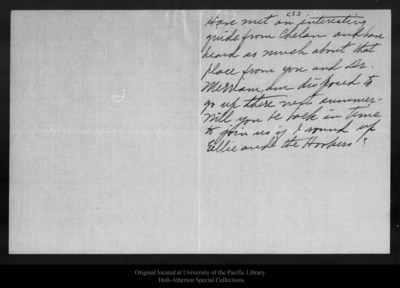 c53
Have met an interesting
guide from Chelan and have
heard so much about that
place from you and Dr.
Merriam, am disposed to
go up there next summer.
Will you be back in time
to join us if I round up
Nellie and the Hookers?
Original located at University of the Pacific Library
Holt-Atherton Special Collections